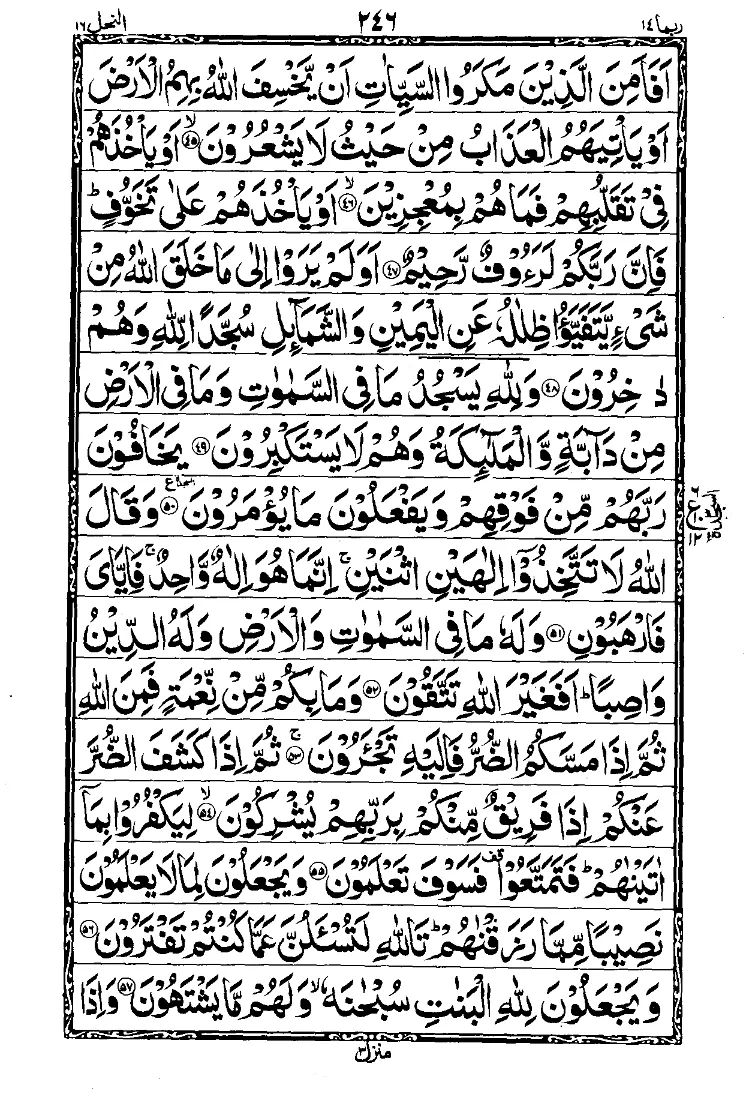 ربما ١٤ ٢٤٦ النحل ١٦
اَفَاَمِنَ الَّذِيْنَ مَكَرُوا السَّيِّاٰتِ اَنْ يَّخْسِفَ اللّٰهُ بِهِمُ الْاَرْضَ
اَوْ يَاْتِيَهُمُ الْعَذَابُ مِنْ حَيْثُ لَا يَشْعُرُوْنَ ۙ﴿۴۵﴾ اَوْ يَاْخُذَهُمْ
فِيْ تَقَلُّبِهِمْ فَمَا هُمْ بِمُعْجِزِيْنَ ۙ﴿۴۶﴾ اَوْ يَاْخُذَهُمْ عَلٰى تَخَوُّفٍ ؕ
فَاِنَّ رَبَّكُمْ لَرَءُوْفٌ رَّحِيْمٌ ﴿۴۷﴾ اَوَلَمْ يَرَوْا اِلٰى مَا خَلَقَ اللّٰهُ مِنْ
شَيْءٍ يَّتَفَيَّؤُا ظِلٰلُهٗ عَنِ الْيَمِيْنِ وَ الشَّمَآئِلِ سُجَّدًا لِّلّٰهِ وَ هُمْ
دٰخِرُوْنَ ﴿۴۸﴾ وَ لِلّٰهِ يَسْجُدُ مَا فِي السَّمٰوٰتِ وَ مَا فِي الْاَرْضِ
مِنْ دَآبَّةٍ وَّ الْمَلٰٓئِكَةُ وَ هُمْ لَا يَسْتَكْبِرُوْنَ ﴿۴۹﴾ يَخَافُوْنَ
رَبَّهُمْ مِّنْ فَوْقِهِمْ وَ يَفْعَلُوْنَ مَا يُؤْمَرُوْنَ ﴿۵۰﴾ وَ قَالَ
السجدة ٣ ٦ ع ١٠ ١٢
اللّٰهُ لَا تَتَّخِذُوْۤا اِلٰهَيْنِ اثْنَيْنِ ۚ اِنَّمَا هُوَ اِلٰهٌ وَّاحِدٌ ۚ فَاِيَّايَ
فَارْهَبُوْنِ ﴿۵۱﴾ وَ لَهٗ مَا فِي السَّمٰوٰتِ وَ الْاَرْضِ وَ لَهُ الدِّيْنُ
وَاصِبًا ؕ اَفَغَيْرَ اللّٰهِ تَتَّقُوْنَ ﴿۵۲﴾ وَ مَا بِكُمْ مِّنْ نِّعْمَةٍ فَمِنَ اللّٰهِ
ثُمَّ اِذَا مَسَّكُمُ الضُّرُّ فَاِلَيْهِ تَجْـَٔرُوْنَ ۚ﴿۵۳﴾ ثُمَّ اِذَا كَشَفَ الضُّرَّ
عَنْكُمْ اِذَا فَرِيْقٌ مِّنْكُمْ بِرَبِّهِمْ يُشْرِكُوْنَ ۙ﴿۵۴﴾ لِيَكْفُرُوْا بِمَاۤ
اٰتَيْنٰهُمْ ؕ فَتَمَتَّعُوْا ۫ فَسَوْفَ تَعْلَمُوْنَ ﴿۵۵﴾ وَ يَجْعَلُوْنَ لِمَا لَا يَعْلَمُوْنَ
نَصِيْبًا مِّمَّا رَزَقْنٰهُمْ ؕ تَاللّٰهِ لَتُسْـَٔلُنَّ عَمَّا كُنْتُمْ تَفْتَرُوْنَ ﴿۵۶﴾
وَ يَجْعَلُوْنَ لِلّٰهِ الْبَنٰتِ سُبْحٰنَهٗ ۙ وَ لَهُمْ مَّا يَشْتَهُوْنَ ﴿۵۷﴾ وَ اِذَا
منزل ٣